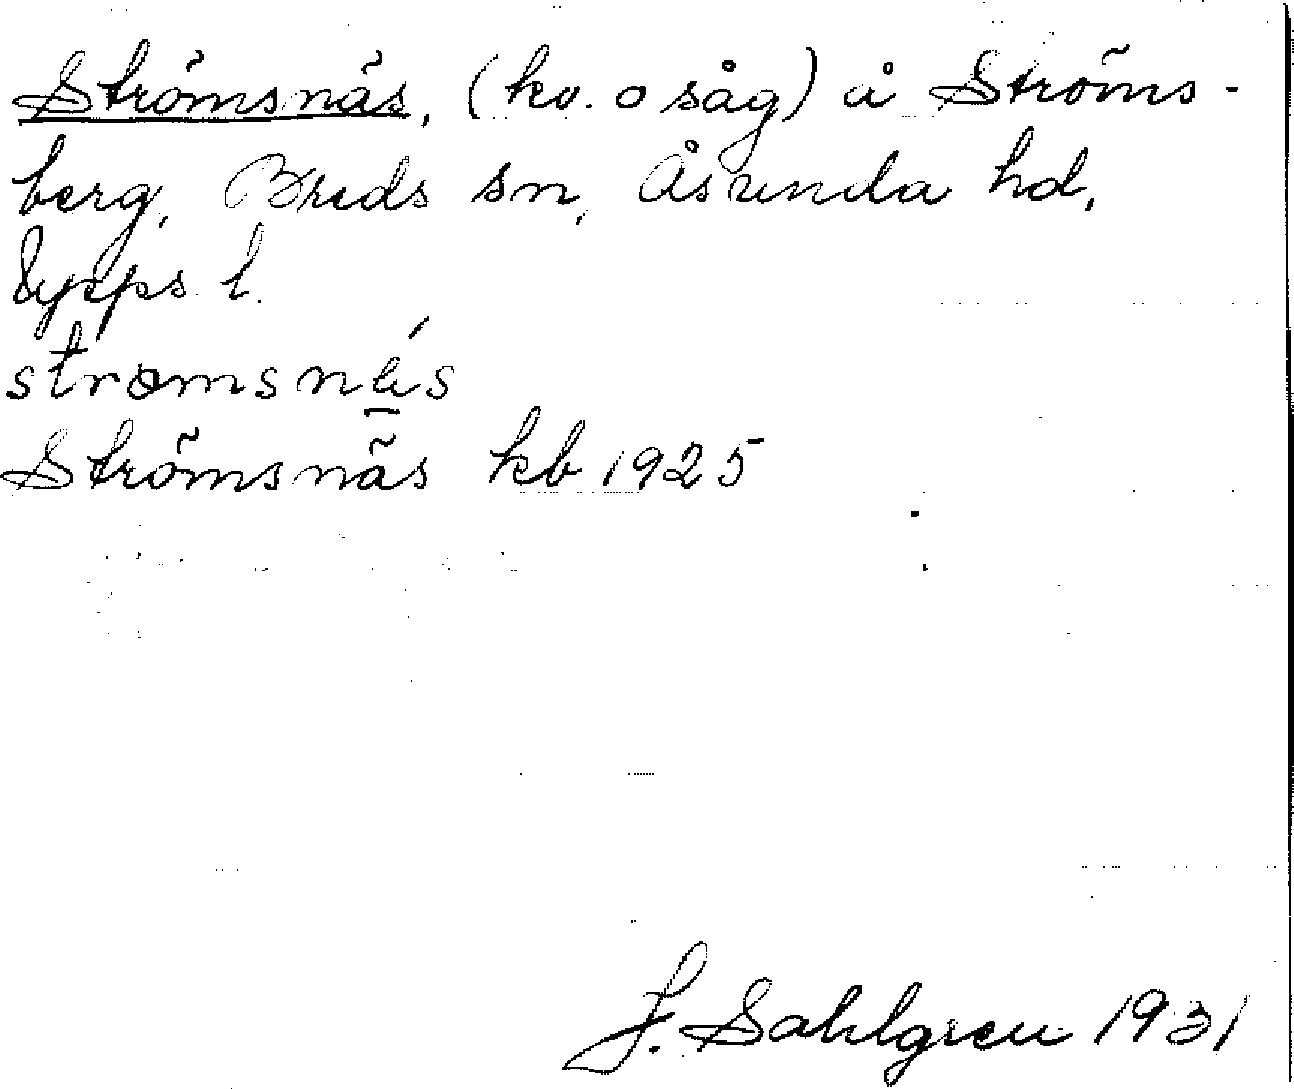 Strömsnäs, (kv. o såg) å Ströms-
berg, Breds sn, Åsunda hd,
Upps. l.
strömsnä́s
Strömsnäs kb 1925
J. Sahlgren 1931